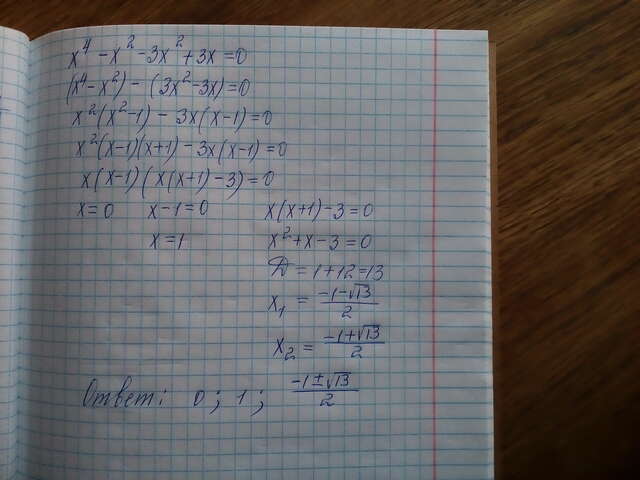 x⁴ - x² - 3x² + 3x = 0
(x⁴ - x²) - (3x² - 3x) = 0
x²(x² - 1) - 3x(x - 1) = 0
x²(x - 1)(x + 1) - 3x(x - 1) = 0
x(x - 1)(x(x + 1) - 3) = 0
x = 0 x - 1 = 0 x(x + 1) - 3 = 0
x = 1 x² + x - 3 = 0
D = 1 + 12 = 13
x₁ = (-1 - √13)/2
x₂ = (-1 + √13)/2
Ответ: 0; 1; (-1 ± √13)/2